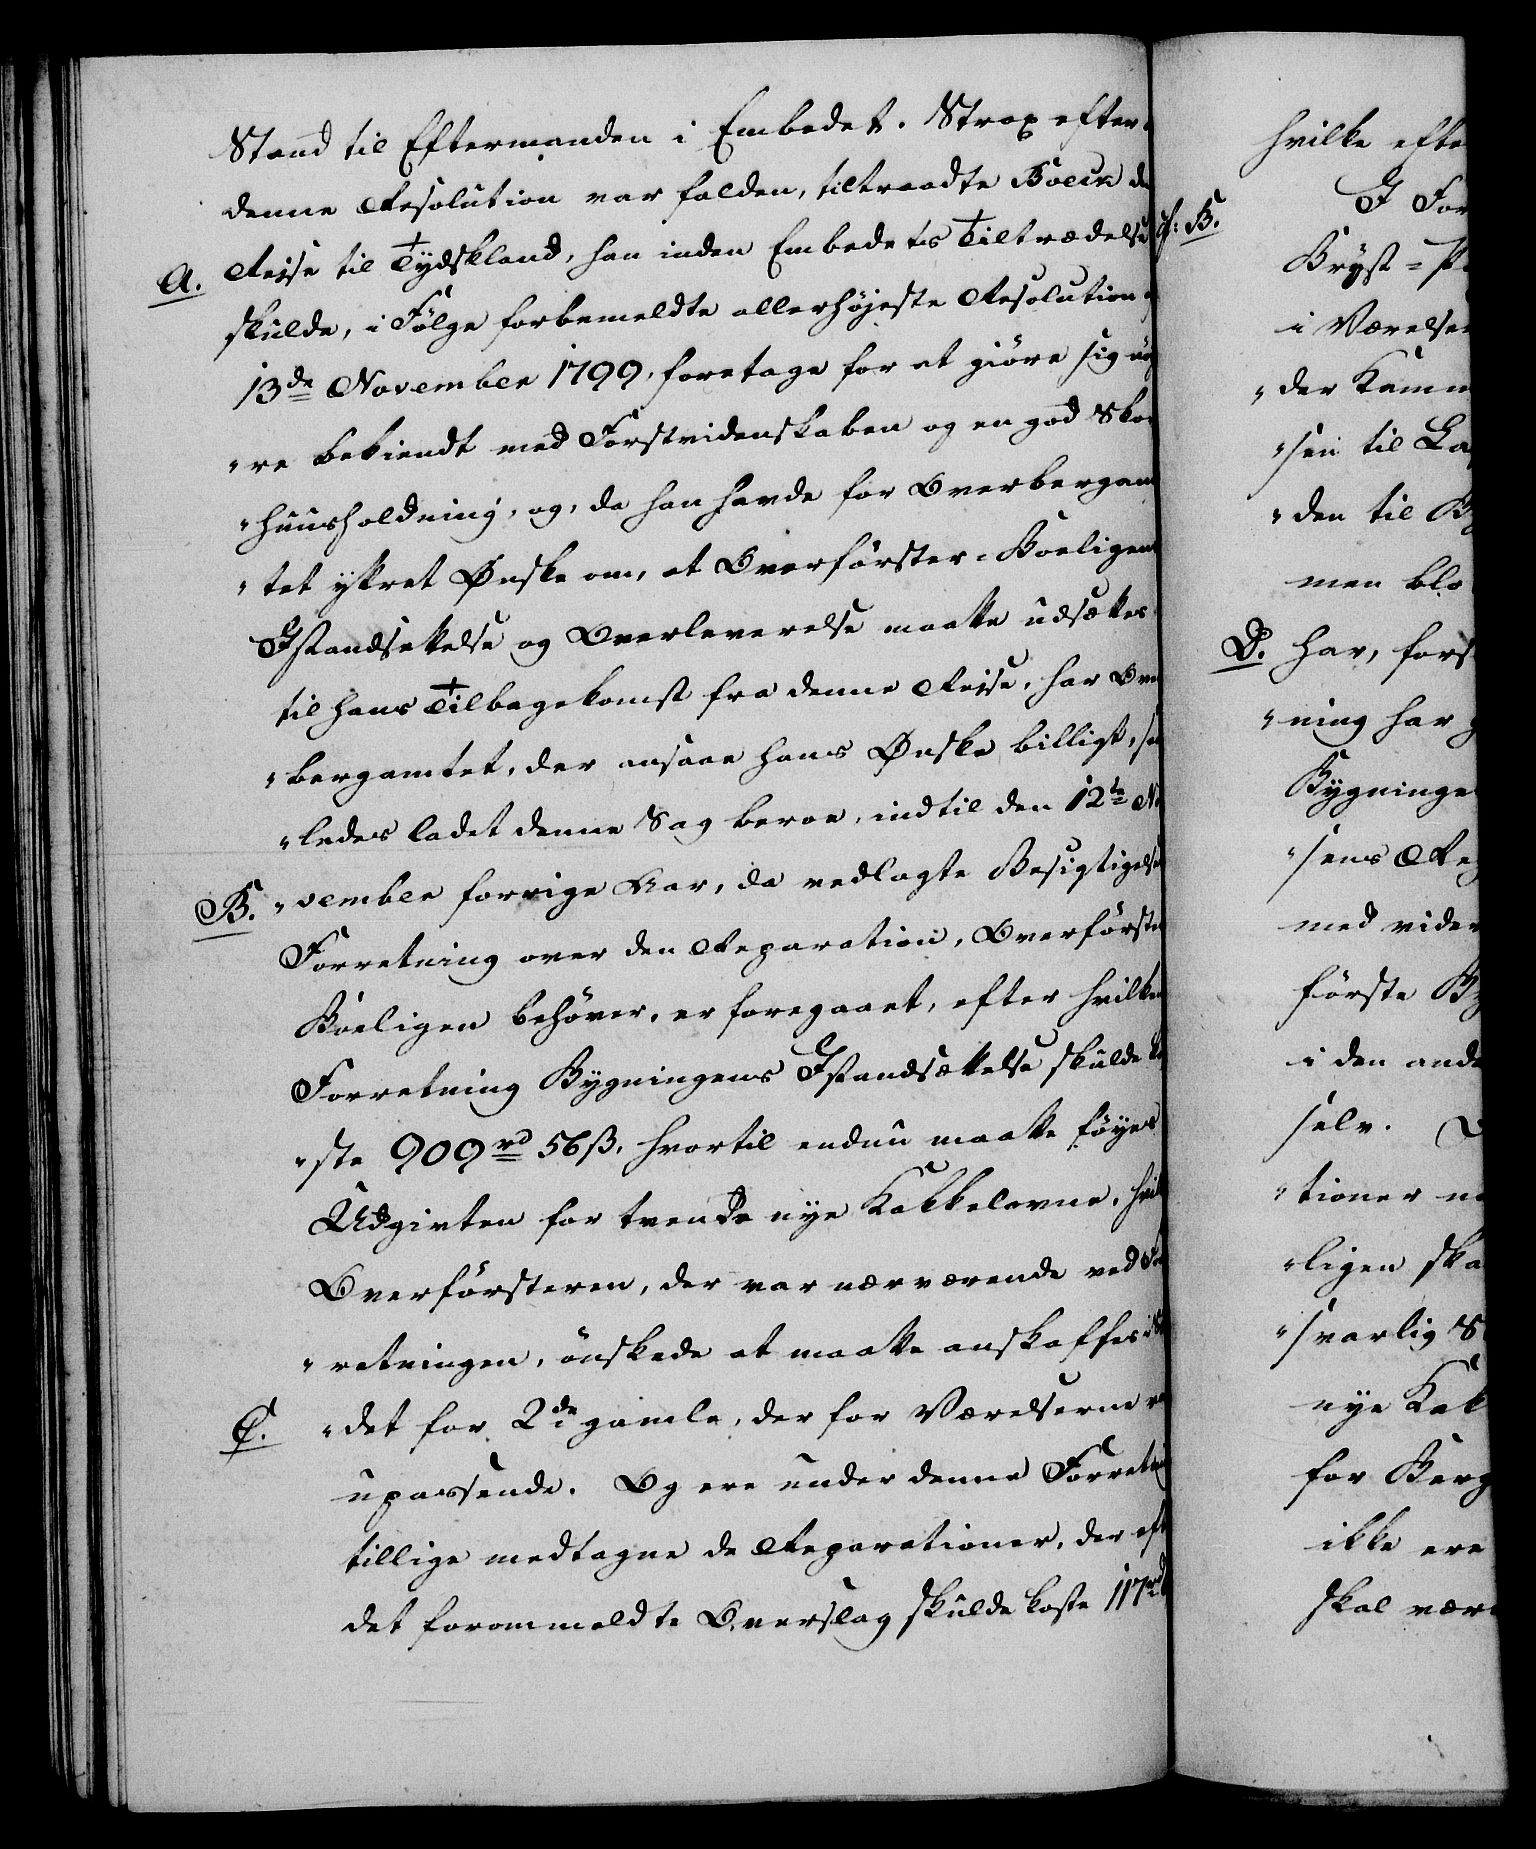 Stand til Eftermanden i Embedet. Strax efter
denne Resolution var falden, tiltraadte Boeck
A. Reise til Tydskland, han inden Embedets Tiltrædelse
skulde, i Følge forbemeldte allerhøjeste Resolution
13de November 1799, foretage for at giøre sig
"re bekiendt med Forstvidenskaben og en god
"huusholdning, og, da han havde for Overbergam
"tet yttret Ønske om, at Overførster-Boeligens
Istandsettelse og Overleverelse maatte udsættes
til hans Tilbagekomst fra denne Reise, har
"bergamtet, der ansaae hans Ønske billigt,
"ledes ladet denne Sag beroe, indtil den 12te
B. "vember forrige Aar, da vedlagte Besigtigelses
Forretning over den Reparation, Overførster
Boeligen behøver, er foregaaet, efter hvilken
Forretning Bygningens Istandsættelse skulde
"ste 909 rd 56 ß, hvortil endnu maatte føyes
Udgivten for trende nye Kakkelovne,
Overførsteren, der var nærværende ved
"retningen, ønskede at maatte anskaffes
C. "det for 2de gamle, der for Værelserne
upassende. Og ere under denne
tillige medtagne de Reparationer, der
det forommeldte Overslag skulde koste 117 rd
hvilke
I
cf: B.
Bryst=
i
"der
"sen til
"den til
men
D. har,
"ning har
"sens
med
første
i den
selv.
"tioner
"ligen
"svarlig
nye
for
ikke ere
skal